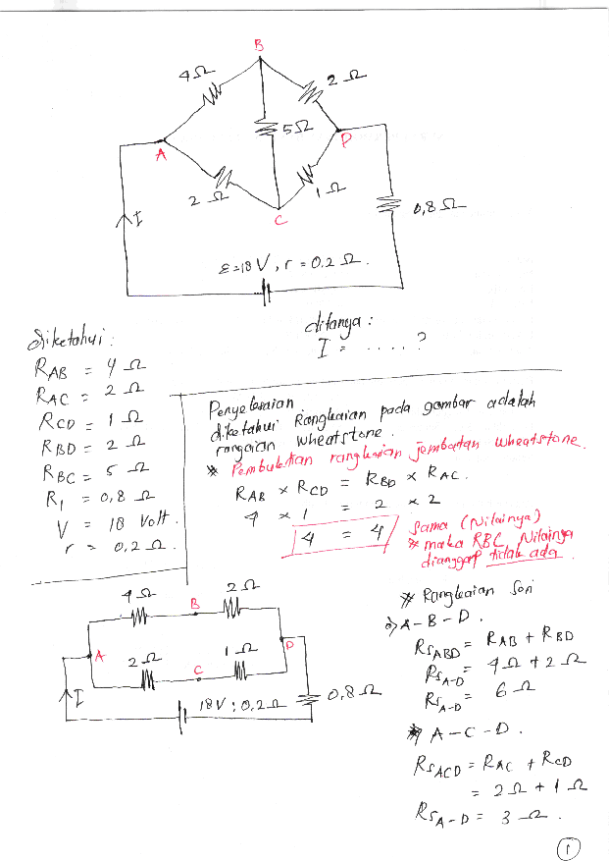 B
4Ω
2Ω
5Ω
A
D
2Ω
1Ω
C
0,8Ω
I
ε=18V, r = 0.2 Ω.
Diketahui:
RAB = 4 Ω
RAC = 2 Ω
RCD = 1 Ω
RBD = 2 Ω
RBC = 5 Ω
R1 = 0,8 Ω
V = 18 Volt.
r = 0,2 Ω.
ditanya:
I = ..... ?
Penyelesaian
diketahui Rangkaian pada gambar adalah
rangaian wheatstone.
* Pembuktian rangkaian jembatan wheatstone.
RAB × RCD = RBD × RAC.
4 × 1 = 2 × 2
4 = 4
Sama (Nilainya)
* maka RBC Nilainya
dianggap tidak ada
4Ω
2Ω
B
A
D
2Ω
1Ω
C
I
18V; 0,2Ω
0,8Ω
* Rangkaian Seri
*) A-B-D.
RSABD = RAB + RBD
RSA-D = 4Ω + 2Ω
RSA-D = 6Ω
*) A-C-D.
RSACD = RAC + RCD
= 2Ω + 1Ω
RSA-D = 3Ω.
1